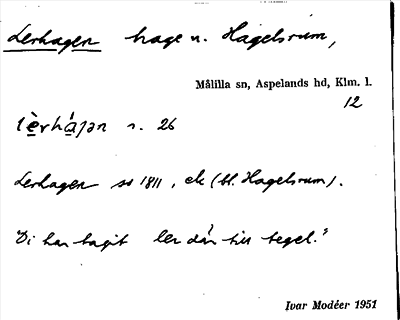 Lerhagen hage n. Hagelsrum,
Målilla sn, Aspelands hd, Klm. l.
12
lè̱rhá̱gən n. 26
Lerhagen so 1811, ek (bl. Hagelsrum).
"Di har tagit ler där till tegel."
Ivar Modéer 1951